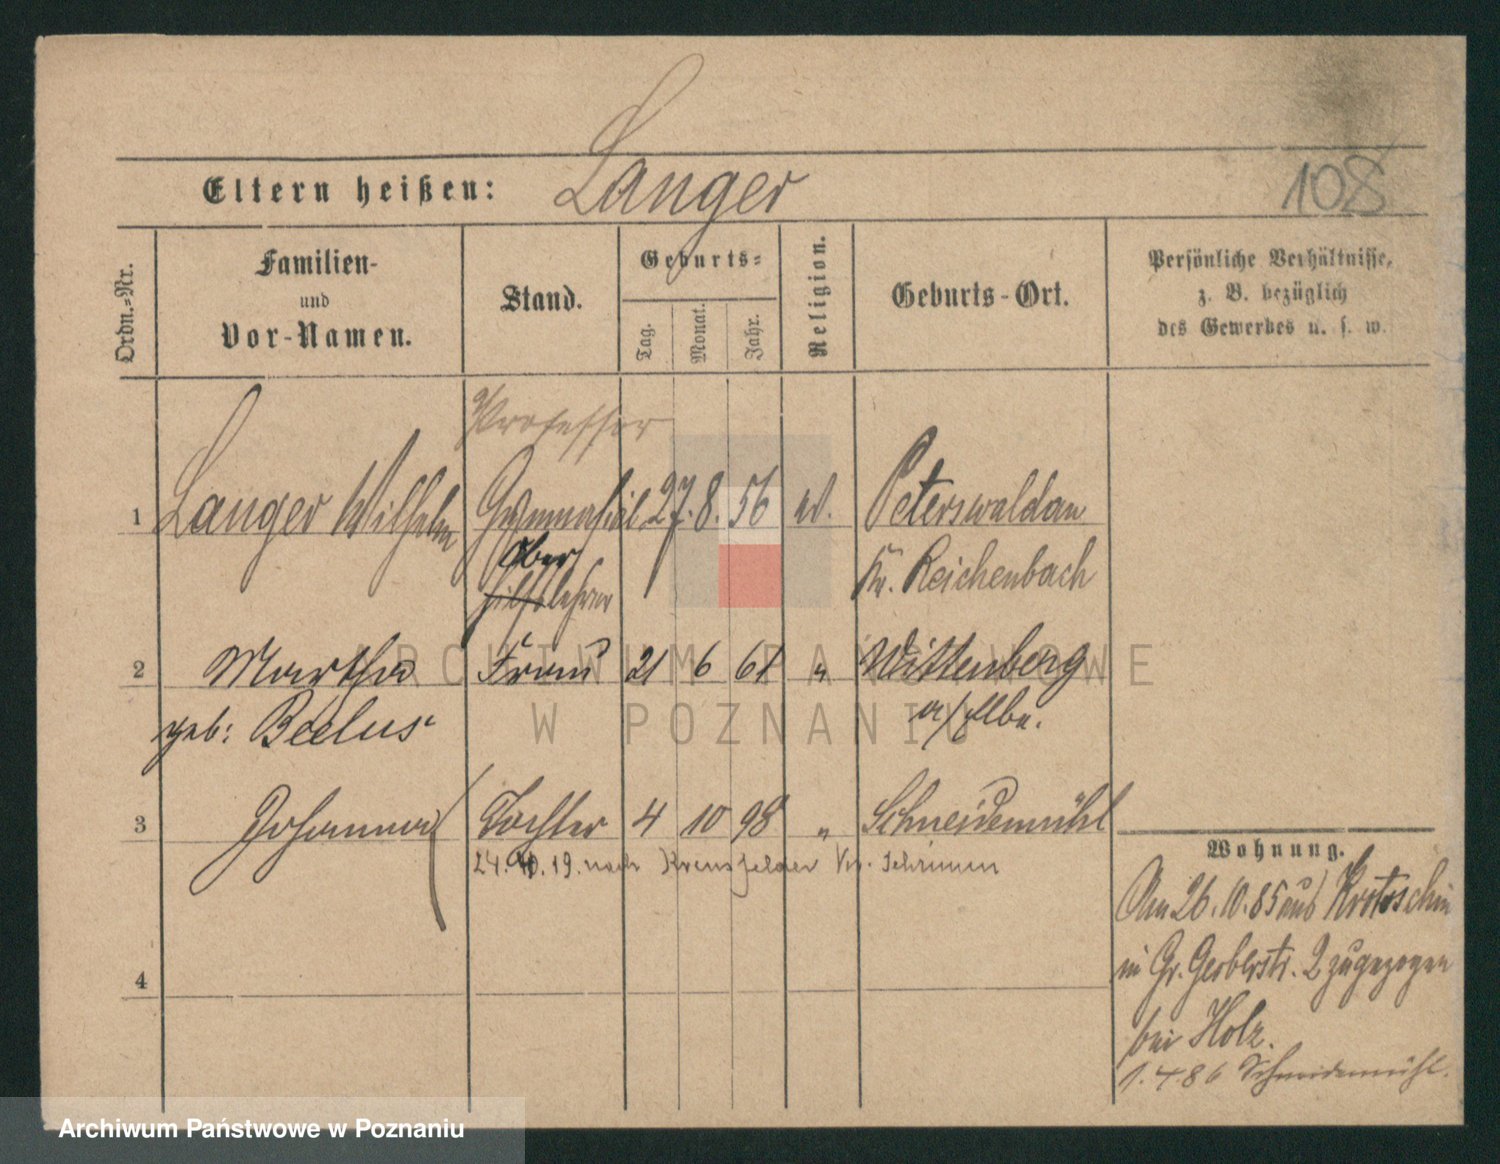 Langer
Eltern heißen:
108
Ordn.-Nr.
Familien-
und
Vor-Namen.
Stand.
Geburts-
Tag.
Monat.
Jahr.
Religion.
Geburts-Ort.
Persönliche Verhältnisse,
z. B. bezüglich
des Gewerbes u. s. w.
Professor
1 Langer Wilhelm Gymnasial 27. 8. 56 ev. Peterswaldau
Ober
hilfslehrer
Kr. Reichenbach
2 Martha Frau 21 6 61 " Wittenberg
geb: Beelus
a/Elbe.
3 Johanna Tochter 4 10 98 " Schneidemühl
24.10.19. nach Schrimm
4
Wohnung.
Am 26.10.85 aus Krotoschin
in Gr. Gerberstr. 2 zugezogen
bei Holz.
1.4.86 Schneidemühl.
ARCHIWUM PAŃSTWOWE
W POZNANIU
Archiwum Państwowe w Poznaniu